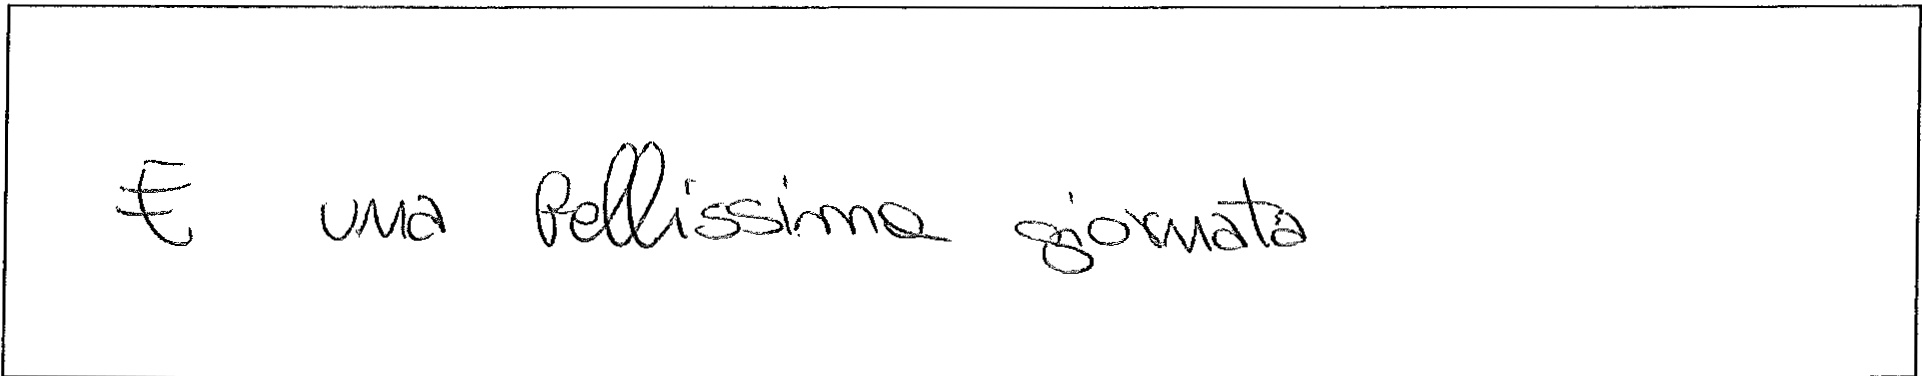 E una bellissima giornata